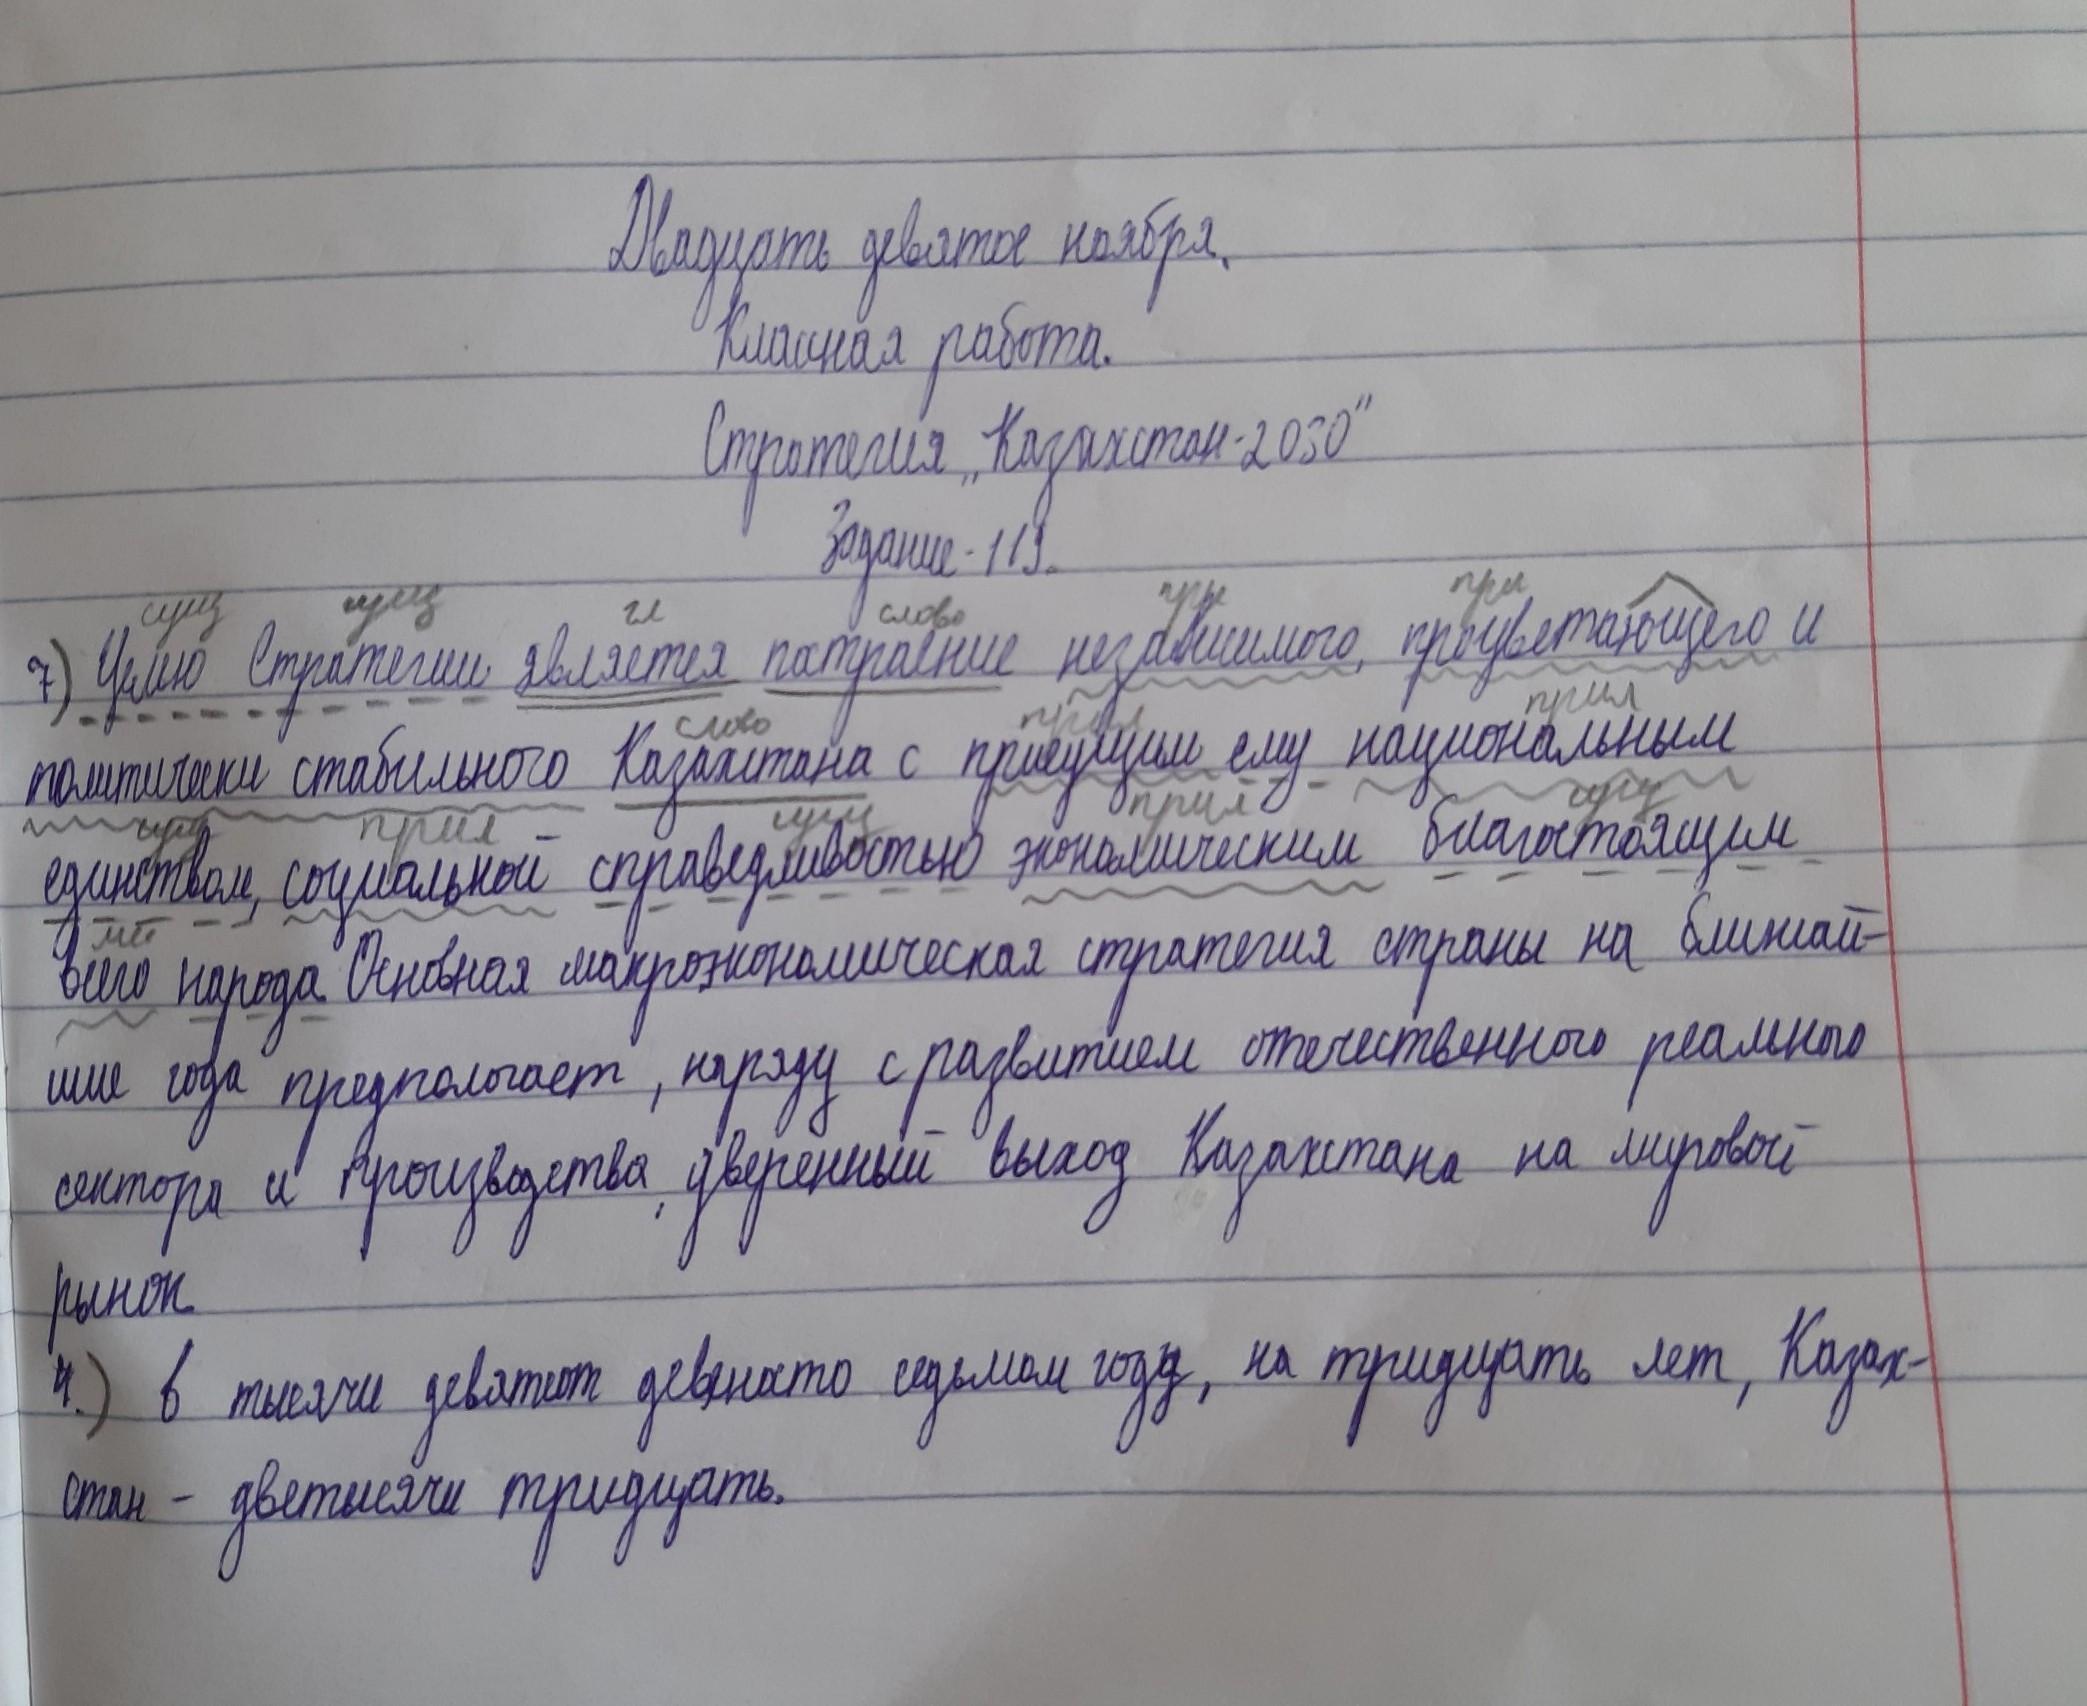 Двадцать девятое ноября.
Классная работа.
Стратегия „Казахстан-2030"
Задание-119.
сущ сущ гл слово при при
7) Целю Стратегии является патраение независимого, процветающего и
слово прил прил
политически стабильного Казахстана с присущим ему национальным
сущ прил сущ прил сущ
единством, социальной справедливостью экономическим благостоящим
мест
всего народа. Основная макроэкономическая стратегия страны на ближай-
шие года предпологает, наряду с развитием отечественного реамного
сектора и производства, уверенный выход Казахстана на мировой
рынок
4.) в тысячи девятсот девеносто седьмом году, на тридцать лет, Казах-
стан - дветысячи тридцать.